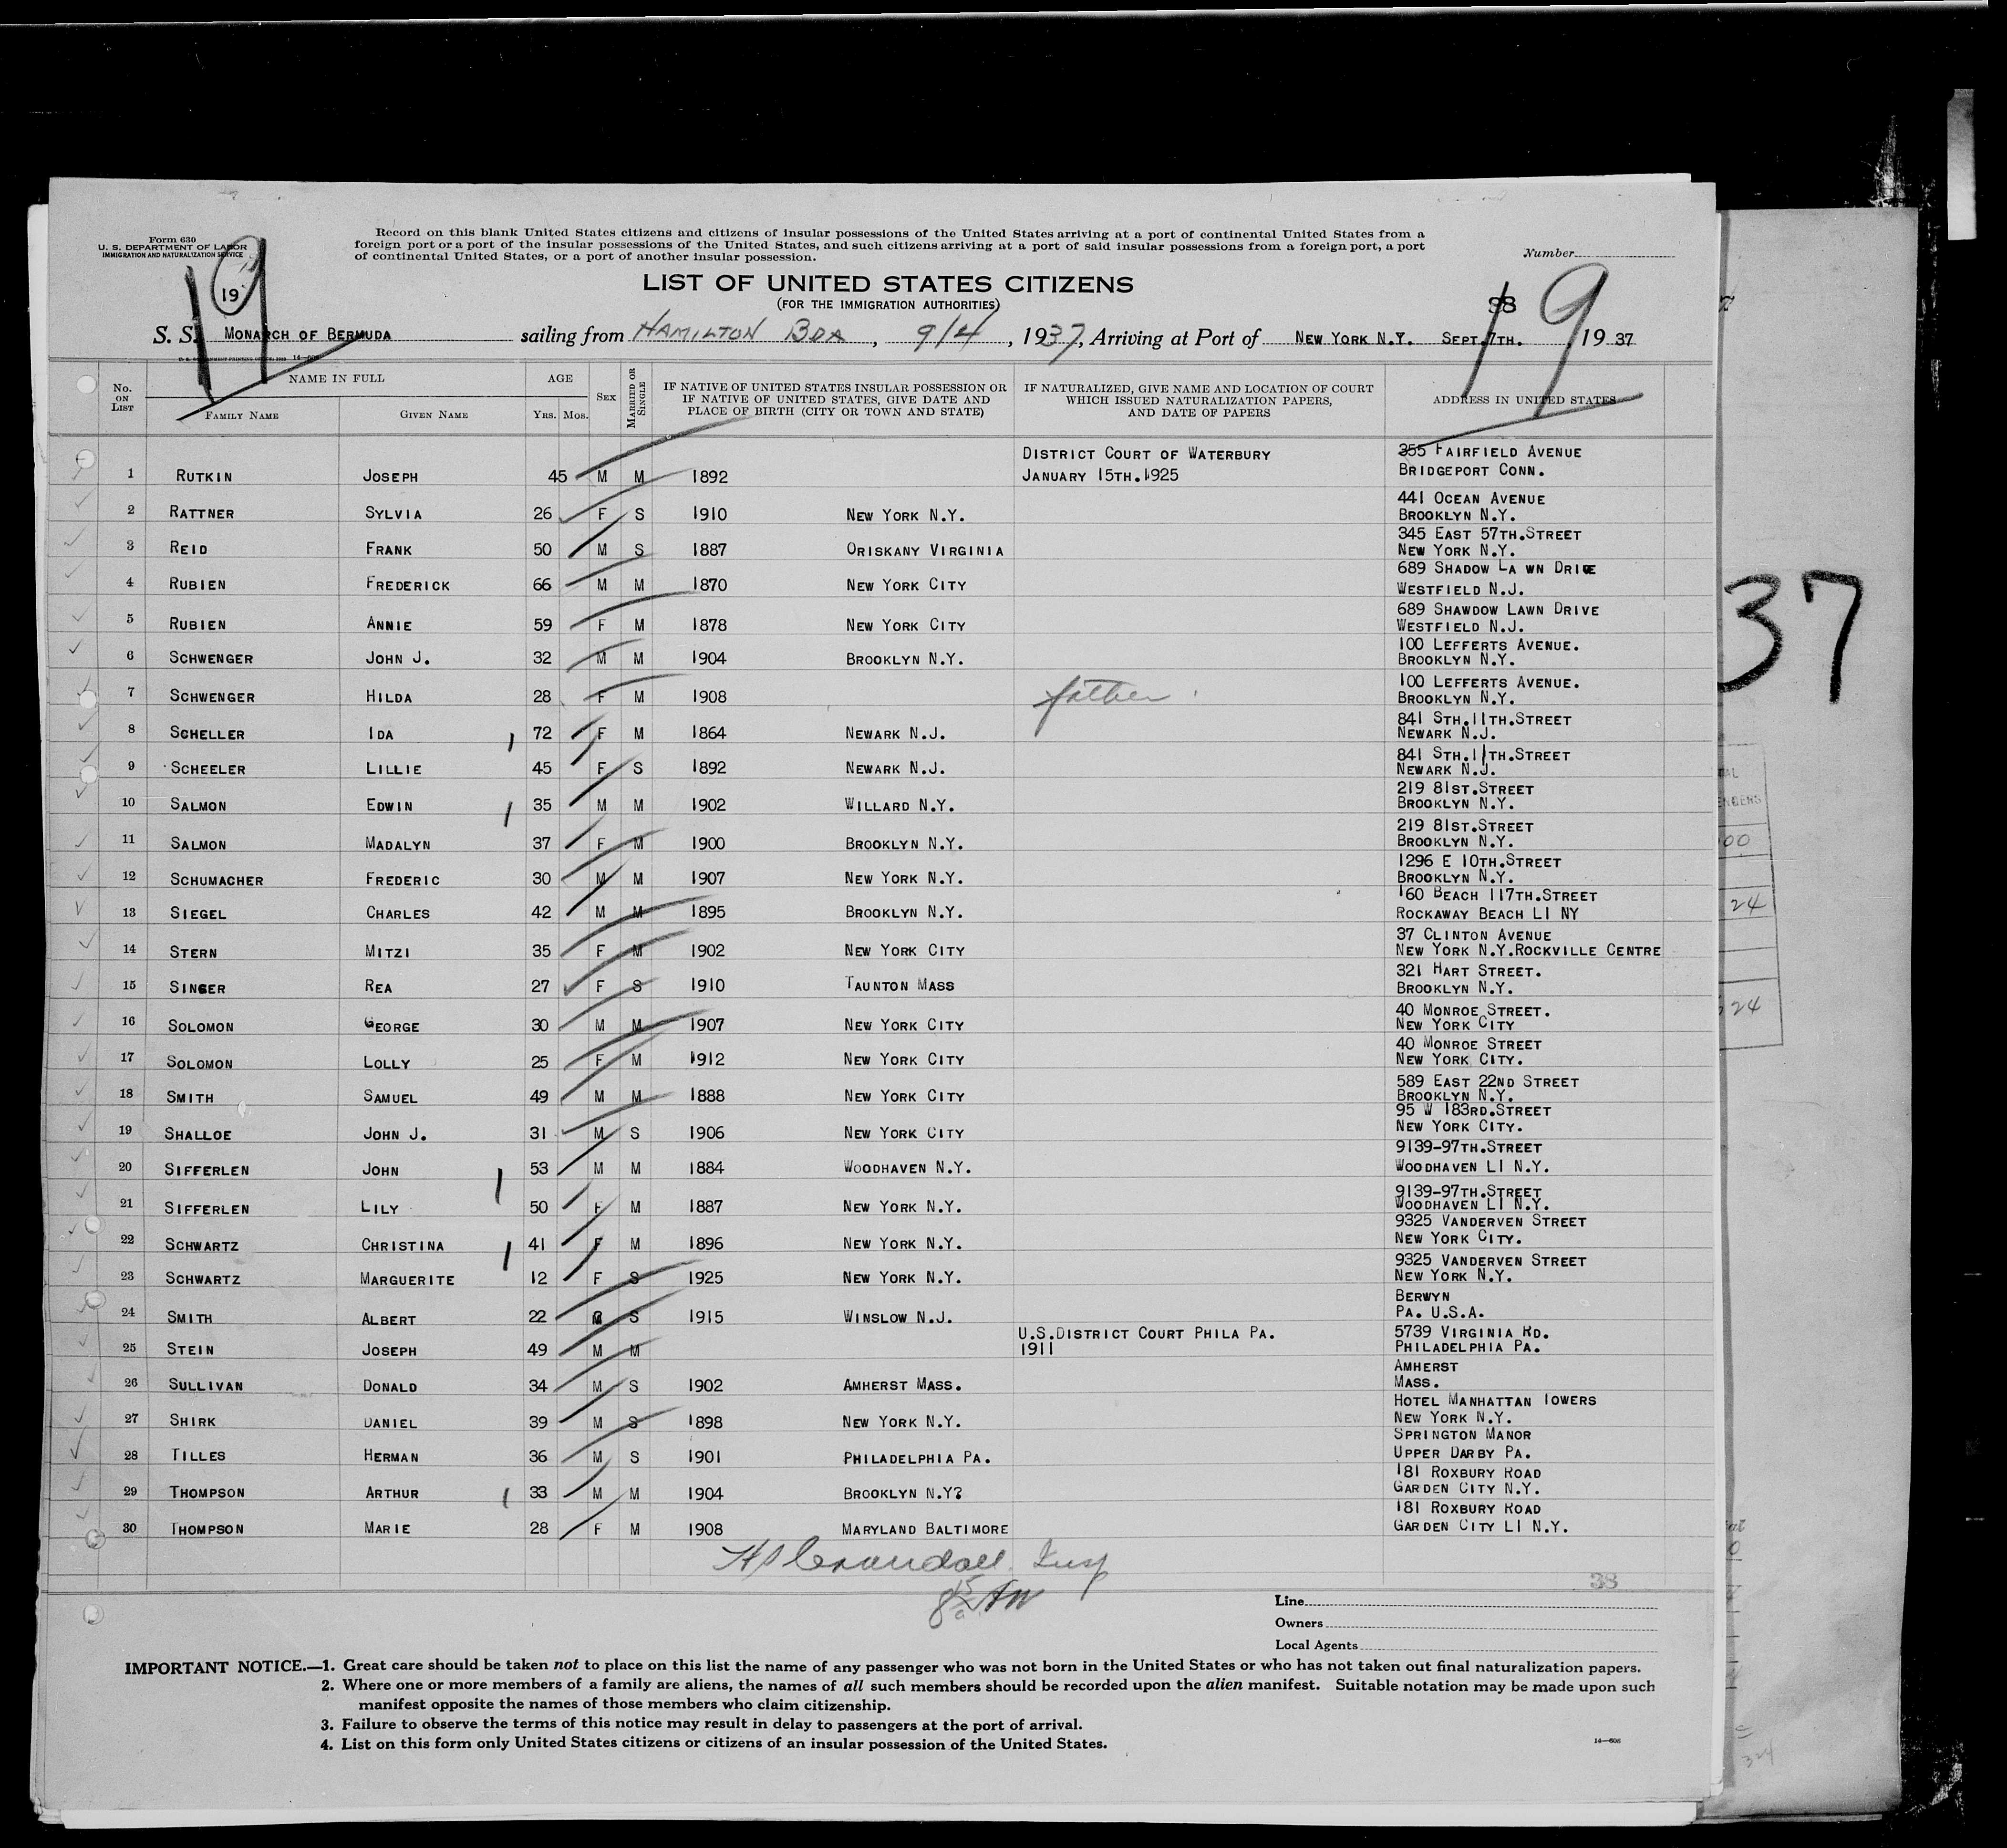 Form 630
U. S. DEPARTMENT OF LABOR
IMMIGRATION AND NATURALIZATION SERVICE
19
19
Record on this blank United States citizens and citizens of insular possessions of the United States arriving at a port of continental United States from a
foreign port or a port of the insular possessions of the United States, and such citizens arriving at a port of said insular possessions from a foreign port, a port
of continental United States, or a port of another insular possession.
Number
LIST OF UNITED STATES CITIZENS
(FOR THE IMMIGRATION AUTHORITIES)
19
S. S. MONARCH OF BERMUDA sailing from HAMILTON BDA, 9/4, 1937, Arriving at Port of NEW YORK N.Y. SEPT.7TH. , 19 37
No. ON LIST NAME IN FULL FAMILY NAME GIVEN NAME AGE YRS. MOS. SEX MARRIED OR SINGLE IF NATIVE OF UNITED STATES INSULAR POSSESSION OR IF NATIVE OF UNITED STATES, GIVE DATE AND PLACE OF BIRTH (CITY OR TOWN AND STATE) IF NATURALIZED, GIVE NAME AND LOCATION OF COURT WHICH ISSUED NATURALIZATION PAPERS, AND DATE OF PAPERS ADDRESS IN UNITED STATES
1 RUTKIN JOSEPH 45 M M 1892 DISTRICT COURT OF WATERBURY JANUARY 15TH.1925 355 FAIRFIELD AVENUE BRIDGEPORT CONN.
2 RATTNER SYLVIA 26 F S 1910 NEW YORK N.Y. 441 OCEAN AVENUE BROOKLYN N.Y.
3 REID FRANK 50 M S 1887 ORISKANY VIRGINIA 345 EAST 57TH.STREET NEW YORK N.Y.
4 RUBIEN FREDERICK 66 M M 1870 NEW YORK CITY 689 SHADOW LA WN DRIVE WESTFIELD N.J.
5 RUBIEN ANNIE 59 F M 1878 NEW YORK CITY 689 SHAWDOW LAWN DRIVE WESTFIELD N.J.
6 SCHWENGER JOHN J. 32 M M 1904 BROOKLYN N.Y. 100 LEFFERTS AVENUE. BROOKLYN N.Y.
7 SCHWENGER HILDA 28 F M 1908 father 100 LEFFERTS AVENUE. BROOKLYN N.Y.
8 SCHELLER IDA 72 F M 1864 NEWARK N.J. 841 STH.11TH.STREET NEWARK N.J.
9 SCHEELER LILLIE 45 F S 1892 NEWARK N.J. 841 STH.11TH.STREET NEWARK N.J.
10 SALMON EDWIN 35 M M 1902 WILLARD N.Y. 219 81ST.STREET BROOKLYN N.Y.
11 SALMON MADALYN 37 F M 1900 BROOKLYN N.Y. 219 81ST.STREET BROOKLYN N.Y.
12 SCHUMACHER FREDERIC 30 M M 1907 NEW YORK N.Y. 1296 E 10TH.STREET BROOKLYN N.Y.
13 SIEGEL CHARLES 42 M M 1895 BROOKLYN N.Y. 160 BEACH 117TH.STREET ROCKAWAY BEACH LI NY
14 STERN MITZI 35 F M 1902 NEW YORK CITY 37 CLINTON AVENUE NEW YORK N.Y.ROCKVILLE CENTRE
15 SINGER REA 27 F S 1910 TAUNTON MASS 321 HART STREET. BROOKLYN N.Y.
16 SOLOMON GEORGE 30 M M 1907 NEW YORK CITY 40 MONROE STREET. NEW YORK CITY
17 SOLOMON LOLLY 25 F M 1912 NEW YORK CITY 40 MONROE STREET NEW YORK CITY.
18 SMITH SAMUEL 49 M M 1888 NEW YORK CITY 589 EAST 22ND STREET BROOKLYN N.Y.
19 SHALLOE JOHN J. 31 M S 1906 NEW YORK CITY 95 W 183RD.STREET NEW YORK CITY.
20 SIFFERLEN JOHN 53 M M 1884 WOODHAVEN N.Y. 9139-97TH.STREET WOODHAVEN LI N.Y.
21 SIFFERLEN LILY 50 F M 1887 NEW YORK N.Y. 9139-97TH.STREET WOODHAVEN LI N.Y.
22 SCHWARTZ CHRISTINA 41 F M 1896 NEW YORK N.Y. 9325 VANDERVEN STREET NEW YORK CITY.
23 SCHWARTZ MARGUERITE 12 F S 1925 NEW YORK N.Y. 9325 VANDERVEN STREET NEW YORK N.Y.
24 SMITH ALBERT 22 M S 1915 WINSLOW N.J. BERWYN PA. U.S.A.
25 STEIN JOSEPH 49 M M U.S.DISTRICT COURT PHILA PA. 1911 5739 VIRGINIA RD. PHILADELPHIA PA.
26 SULLIVAN DONALD 34 M S 1902 AMHERST MASS. AMHERST MASS.
27 SHIRK DANIEL 39 M S 1898 NEW YORK N.Y. HOTEL MANHATTAN TOWERS NEW YORK N.Y.
28 TILLES HERMAN 36 M S 1901 PHILADELPHIA PA. SPRINGTON MANOR UPPER DARBY PA.
29 THOMPSON ARTHUR 33 M M 1904 BROOKLYN N.Y? 181 ROXBURY ROAD GARDEN CITY N.Y.
30 THOMPSON MARIE 28 F M 1908 MARYLAND BALTIMORE 181 ROXBURY ROAD GARDEN CITY LI N.Y.
Crandall Insp
38
Line
Owners
Local Agents
IMPORTANT NOTICE.—1. Great care should be taken not to place on this list the name of any passenger who was not born in the United States or who has not taken out final naturalization papers.
2. Where one or more members of a family are aliens, the names of all such members should be recorded upon the alien manifest. Suitable notation may be made upon such
manifest opposite the names of those members who claim citizenship.
3. Failure to observe the terms of this notice may result in delay to passengers at the port of arrival.
4. List on this form only United States citizens or citizens of an insular possession of the United States.
14—606
37
00
24
24
324